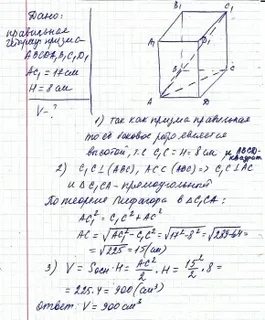 Дано:
правильная
четырёхуг. призма
ABCDA₁B₁C₁D₁
AC₁ = 17 см
H = 8 см
V - ?
B₁
C₁
A₁
D₁
B
C
A
D
1) так как призма правильная
то её боковое ребро является
высотой, т.е C₁C = H = 8 см и ABCD - квадрат
2) C₁C ⊥ (ABC), AC ⊂ (ABC) => C₁C ⊥ AC
и Δ C₁CA - прямоугольный
По теореме Пифагора в Δ C₁CA:
AC₁² = C₁C² + AC²
AC = √AC₁² - C₁C² = √17² - 8² = √289-64 =
= √225 = 15 (см)
3) V = Sосн · H = AC²/2 · H = 15²/2 · 8 =
= 225 · 4 = 900 (см³)
Ответ: V = 900 см³